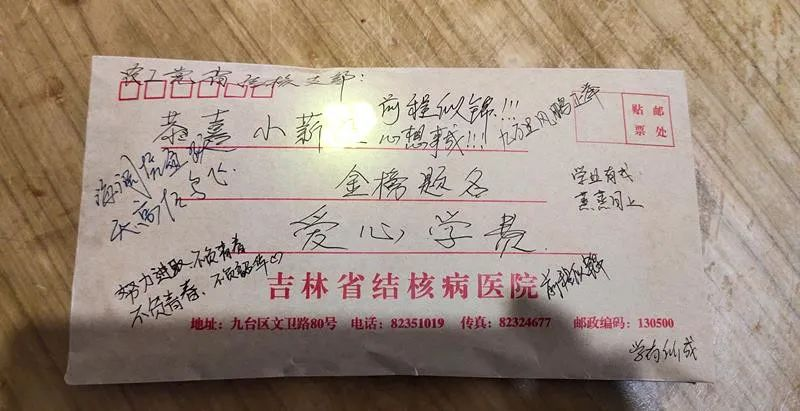 党支部：
恭喜小薪
前程似锦!!!
心想事成!!!
九万里风鹏正举
贴邮
票处
海阔凭鱼跃
天高任鸟飞
金榜题名
学业有成
蒸蒸日上
爱心学费
努力进取、不负青春
不负青春、不负韶华
前程似锦
吉林省结核病医院
地址：九台区文卫路80号 电话：82351019 传真：82324677 邮政编码：130500
学有所成